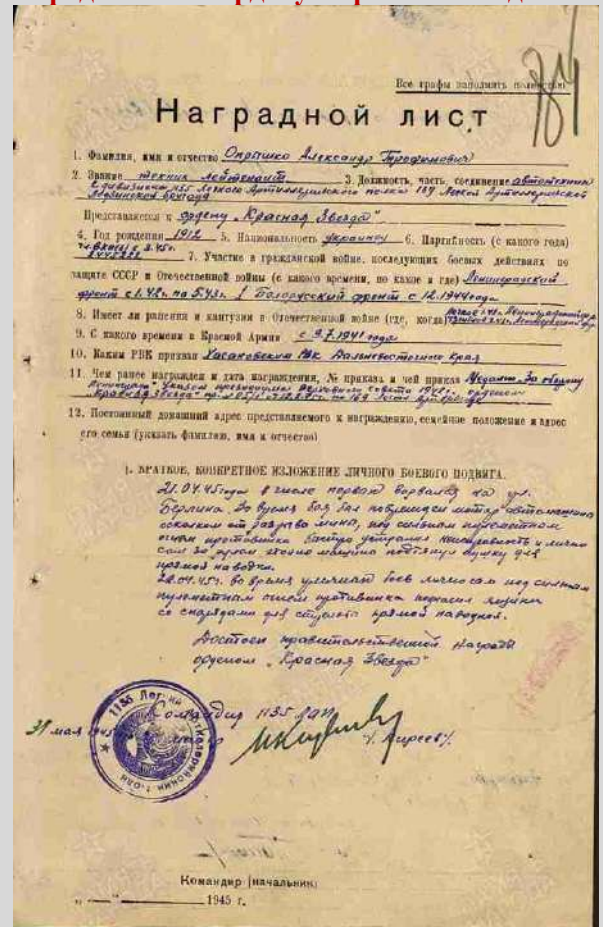 Все графы заполнить полностью
Наградной лист
1. Фамилия, имя и отчество Опрышко Александр Трофимович
2. Звание техник лейтенант 3. Должность, часть, соединение автотехник
дивизиона 1135 Легкого Артиллерийского полка 169 Легкой Артиллерийской
бригады
Представляется к ордену „Красная Звезда"
4. Год рождения 1912 5. Национальность украинец 6. Партийность (с какого года)
7. Участие в гражданской войне, последующих боевых действиях по
защите СССР и Отечественной войны (с какого времени, по какое и где) Ленинградский
фронт с 1.42г. по 5.43г. 1 Белорусский фронт с 12.1944 года
8. Имеет ли ранения и контузии в Отечественной войне (где, когда)
9. С какого времени в Красной Армии с 9.7.1941 года
10. Каким РВК призван Хасановским РВК Дальневосточного Края
11. Чем ранее награжден и дата награждения, № приказа и чей приказ Медалью „За оборону
Ленинграда" указом президиума Верховного совета 1942г. орденом
„Красная Звезда"
12. Постоянный домашний адрес представляемого к награждению, семейное положение и адрес
его семьи (указать фамилию, имя и отчество)
1. КРАТКОЕ, КОНКРЕТНОЕ ИЗЛОЖЕНИЕ ЛИЧНОГО БОЕВОГО ПОДВИГА.
21.04.45 года в числе первых ворвался на ул.
Берлина. Во время боя был поврежден мотор автомашины
осколком от разрыва мины, под сильным пулеметным
огнем противника быстро устранил неисправность и лично
сам за рулем машины подтянул пушку для
прямой наводки.
28.04.45г. во время уличных боев лично сам под сильным
пулеметным огнем противника ящики
со снарядами для стрельбы прямой наводкой.
Достоин правительственной награды
орденом „Красная Звезда"
Командир 1135 лап
31 мая 1945
Киреев
1135 Легкий
Командир (начальник)
„ — " 1945 г.